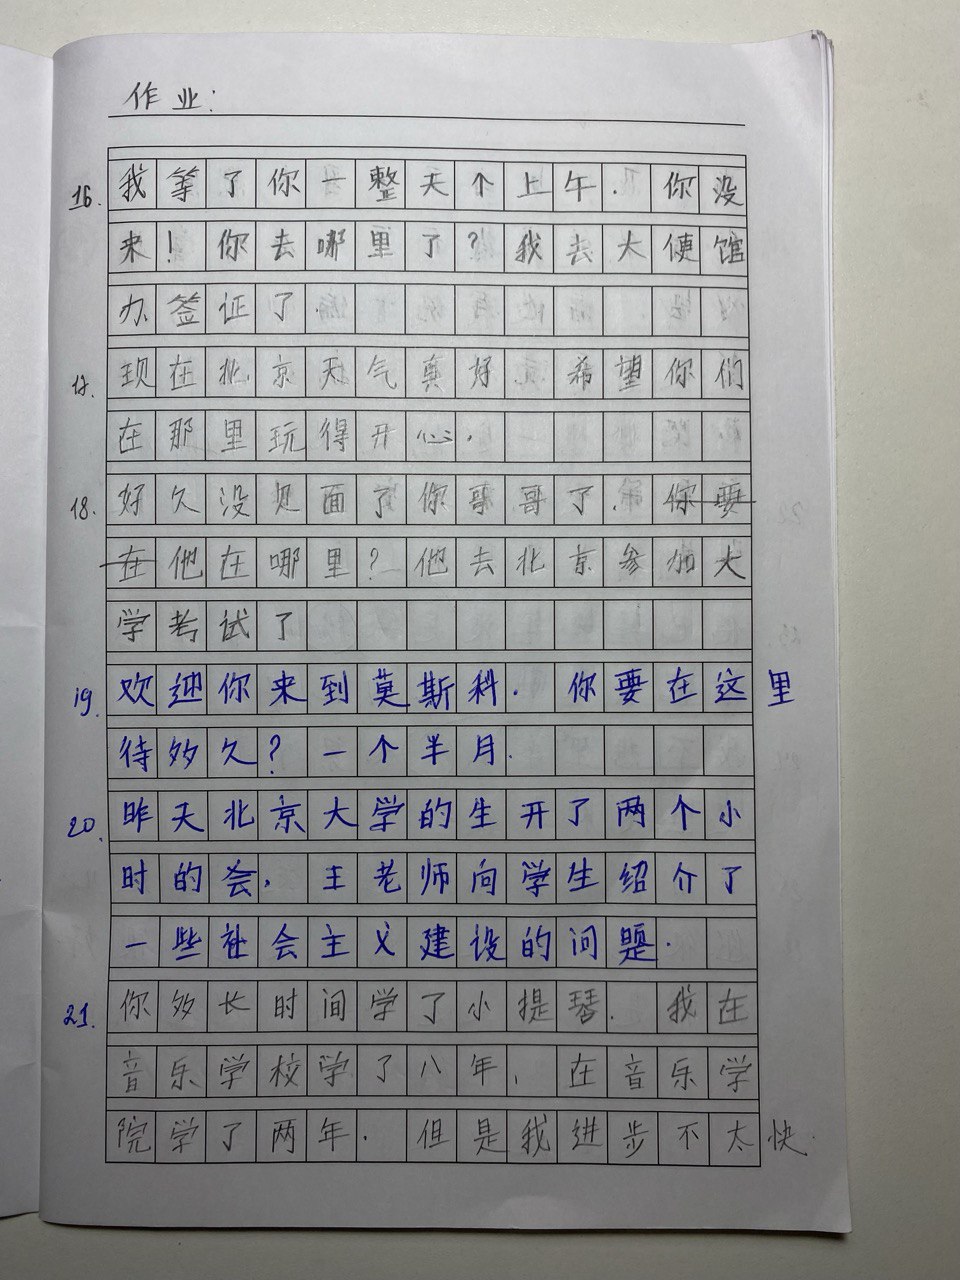 作业:
16. 我等了你一整天个上午. 你没
来! 你去哪里了? 我去大便馆
办签证了.
17. 现在北京天气真好. 希望你们
在那里玩得开心.
18. 好久没见面了你哥哥了. 你要
在他在哪里? 他去北京参加大
学考试了
19. 欢迎你来到莫斯科. 你要在这里
待多久? 一个半月.
20. 昨天北京大学的生开了两个小
时的会. 王老师向学生绍介了
一些社会主义建设的问题.
21. 你多长时间学了小提琴. 我在
音乐学校学了八年, 在音乐学
院学了两年. 但是我进步不太快.